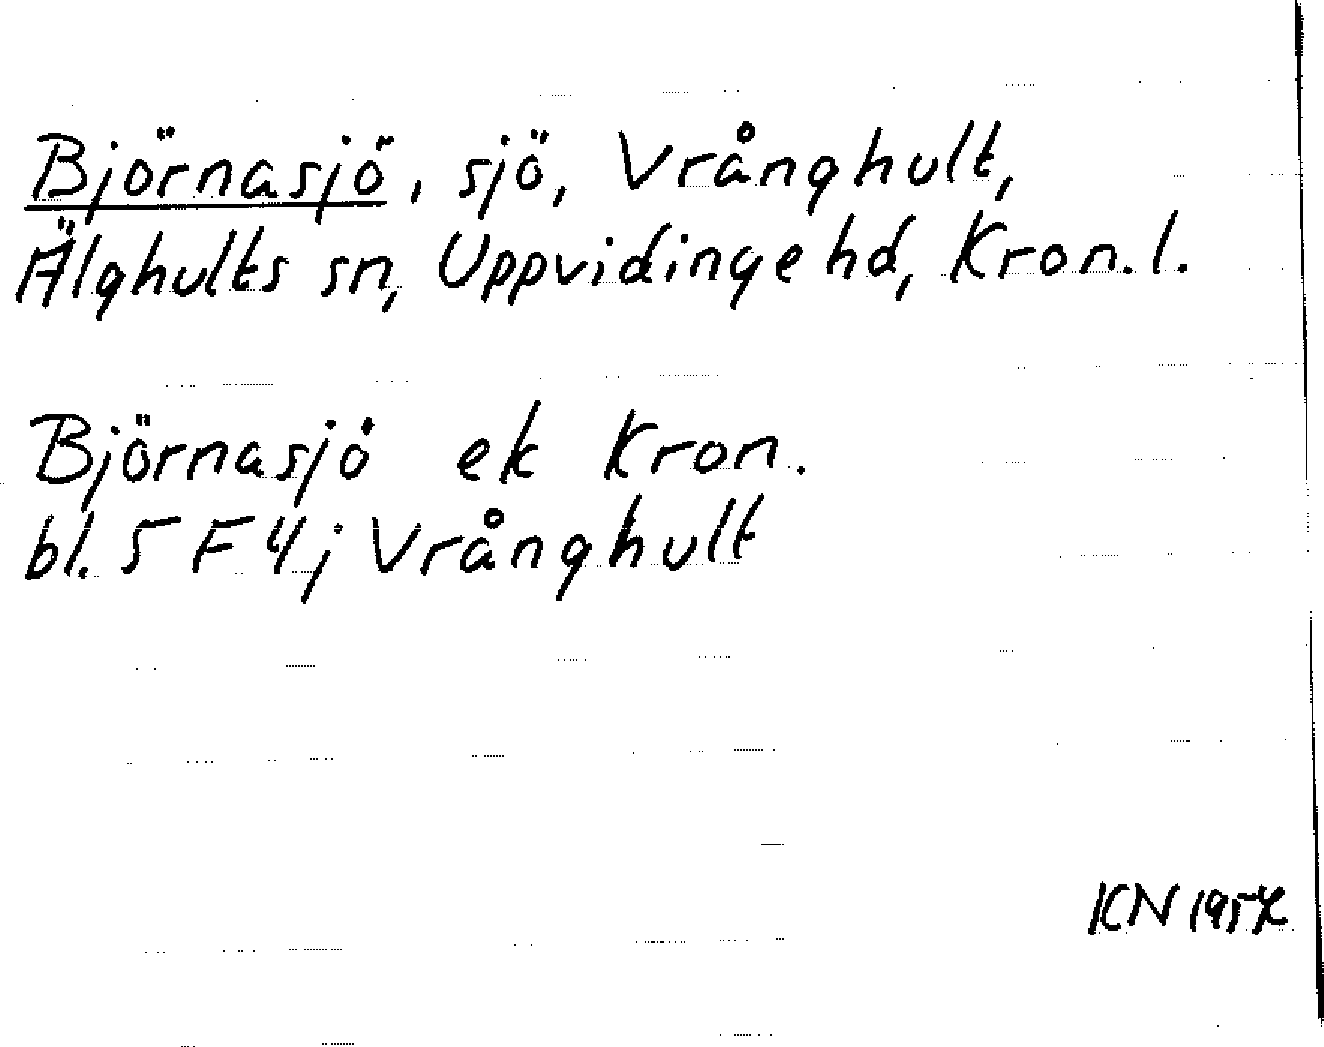 Björnasjö, sjö, Vrånghult,
Älghults sn, Uppvidinge hd, Kron. l.
Björnasjö ek Kron.
bl. 5 F 4j Vrånghult
KN